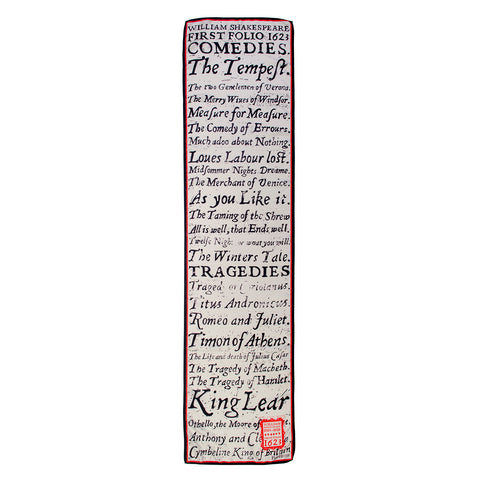 WILLIAM SHAKESPEARE
FIRST FOLIO 1623
COMEDIES.
The Tempest.
The two Gentlemen of Verona.
The Merry Wiues of Windsor.
Measure for Measure.
The Comedy of Errours.
Much adoo about Nothing.
Loues Labour lost.
Midsommer Nights Dreame.
The Merchant of Venice.
As you Like it.
The Taming of the Shrew
All is well, that Ends well.
Twelfe Night or what you will.
The Winters Tale.
TRAGEDIES
Tragedy of Coriolanus.
Titus Andronicus.
Romeo and Juliet.
Timon of Athens.
The Life and death of Julius Cæsar
The Tragedy of Macbeth.
The Tragedy of Hamlet.
King Lear
Othello, the Moore of
Anthony and
Cymbeline King of Britain
1623